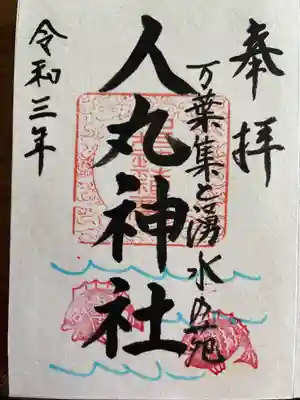 奉拝
万葉集と湧水の旭
人丸神社
令和三年